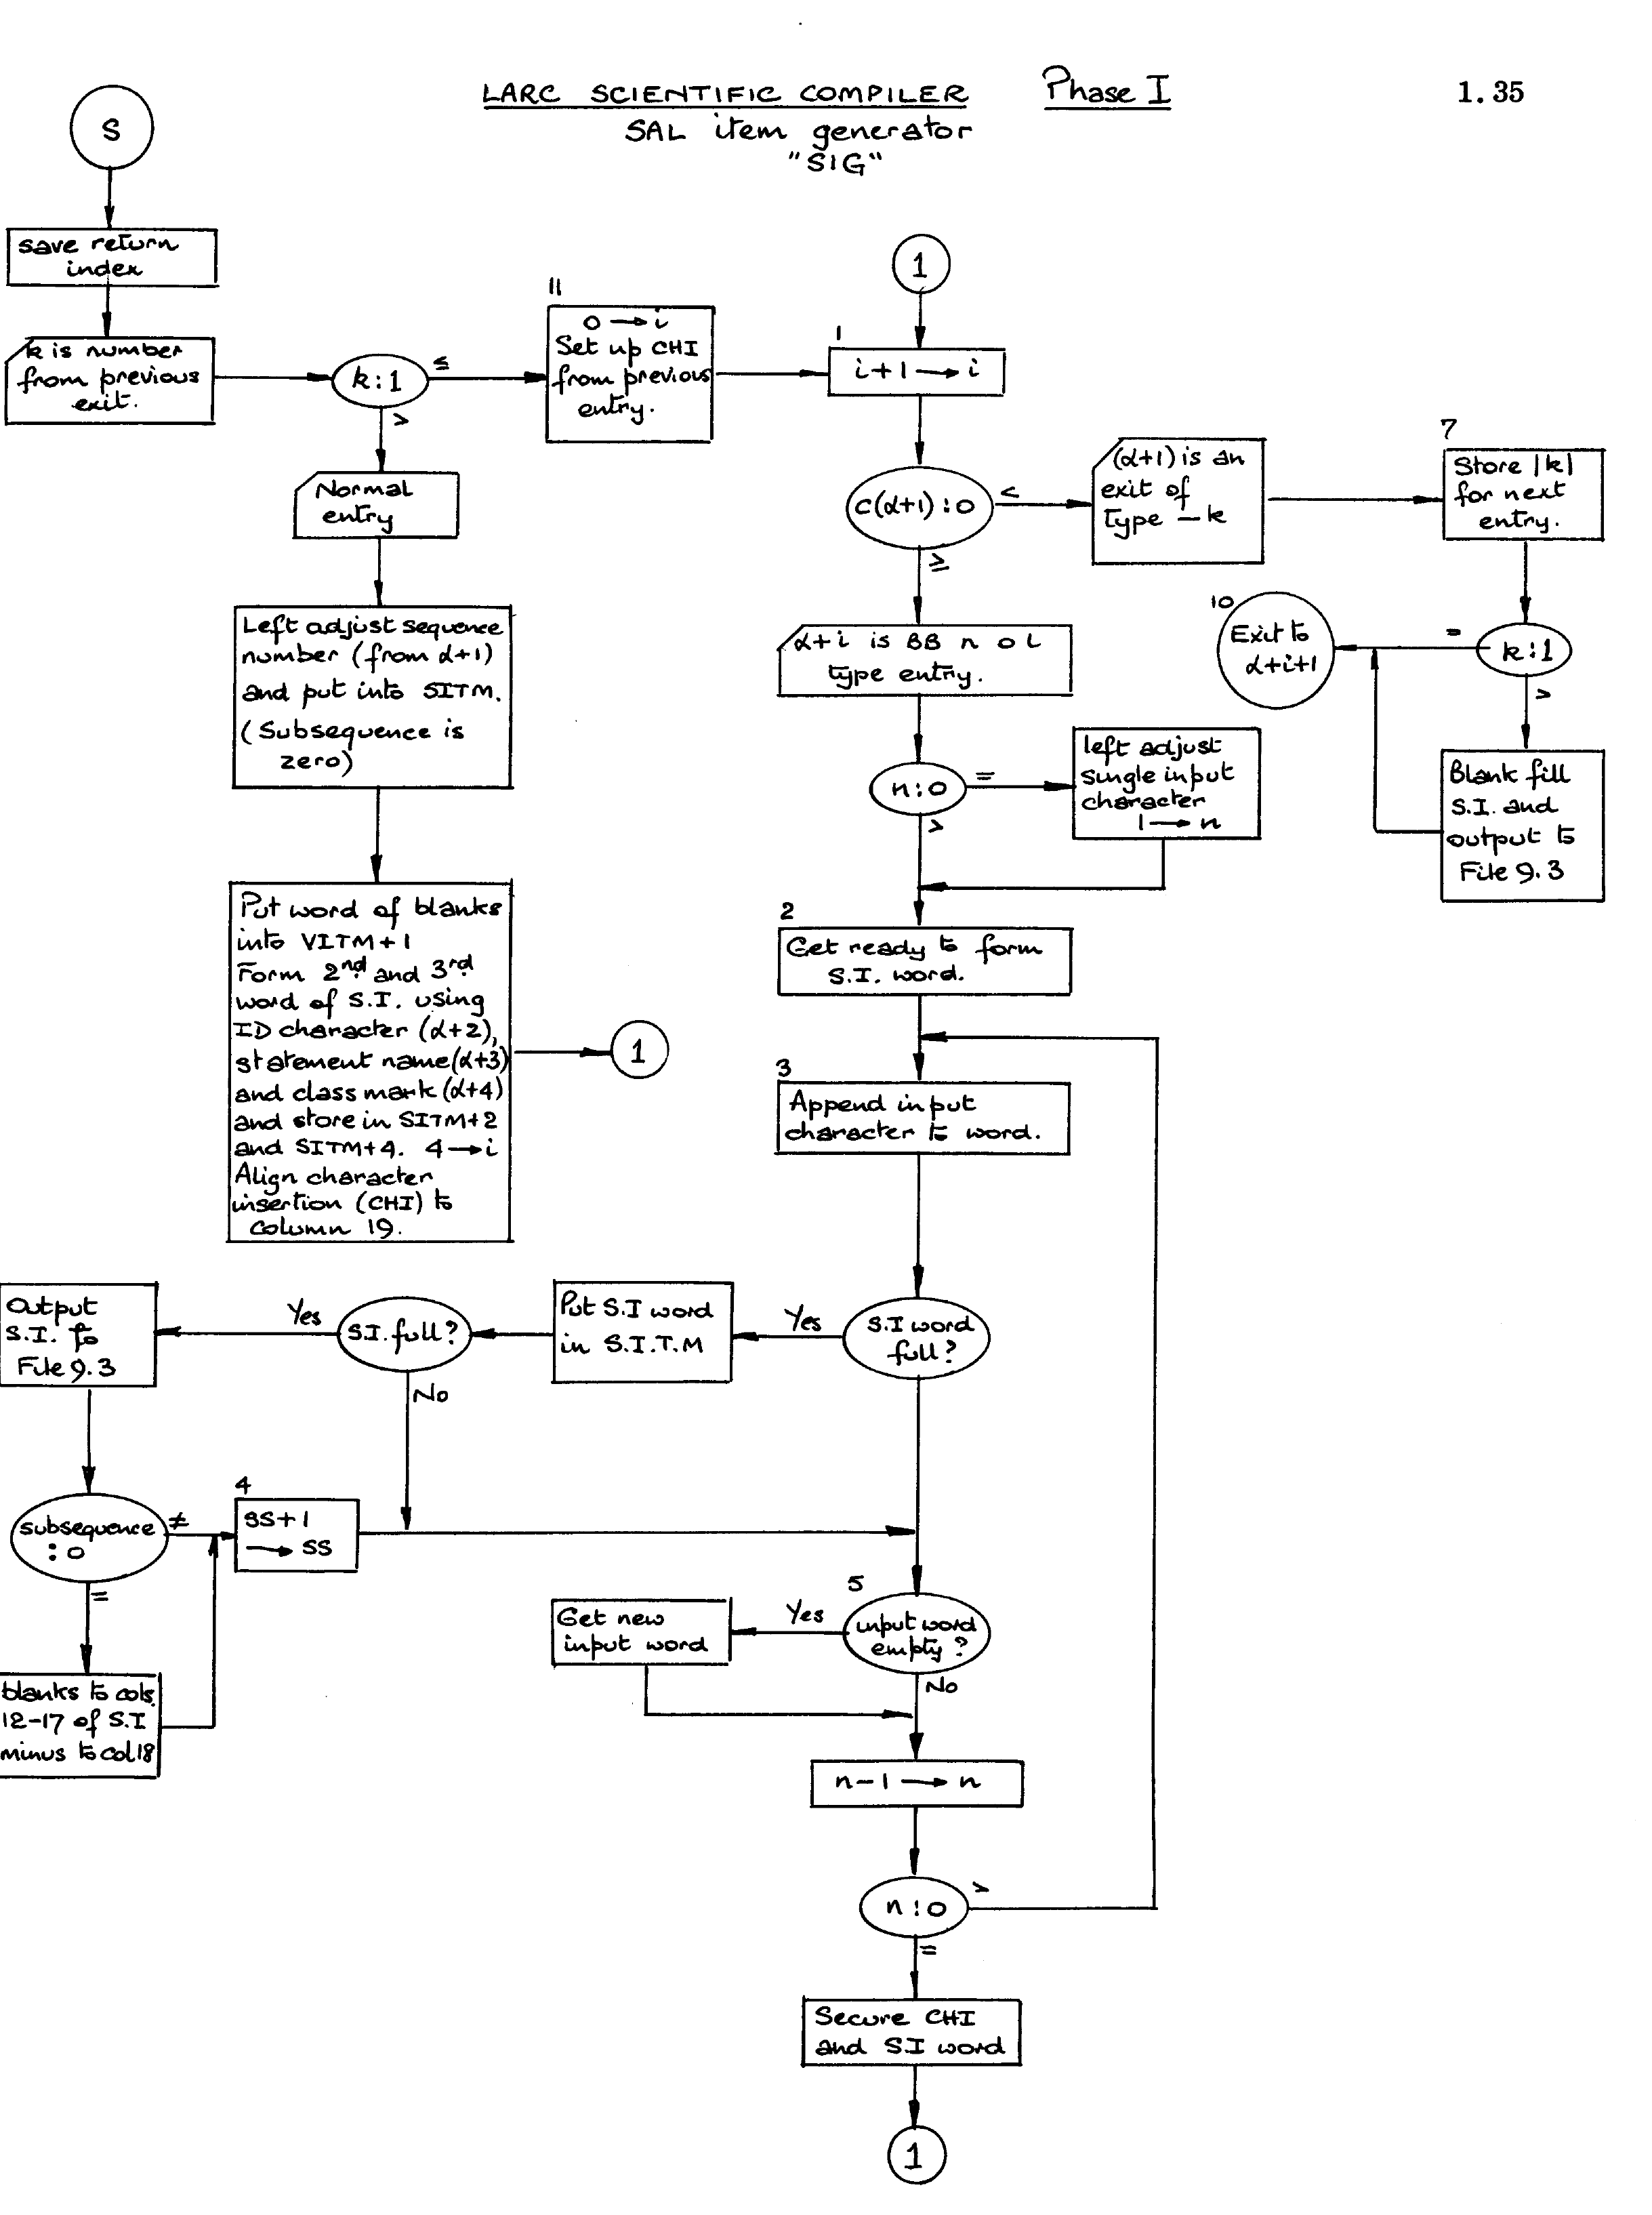 LARC SCIENTIFIC COMPILER Phase I 1.35
SAL item generator
"SIG"
S
save return
index
k is number
from previous
exit.
k:1
≤
>
11
0 → i
Set up CHI
from previous
entry.
Normal
entry
Left adjust sequence
number (from α+1)
and put into SITM.
(Subsequence is
zero)
Put word of blanks
into VITM+1
Form 2nd and 3rd
word of S.I. using
ID character (α+2),
statement name(α+3)
and class mark (α+4)
and store in SITM+2
and SITM+4. 4→i
Align character
insertion (CHI) to
Column 19.
1
1
1
i+1 → i
c(α+1):0
<
≥
(α+1) is an
exit of
type -k
7
Store |k|
for next
entry.
k:1
=
>
10
Exit to
α+i+1
Blank fill
S.I. and
output to
File 9.3
α+i is BB n o L
type entry.
n:0
=
>
left adjust
single input
character
1 → n
2
Get ready to form
S.I. word.
3
Append input
character to word.
S.I word
full?
Yes
Put S.I word
in S.I.T.M
S.I. full?
Yes
No
Output
S.I. to
File 9.3
subsequence
:0
≠
=
4
SS+1
→ SS
blanks to cols.
12-17 of S.I
minus to col 18
5
input word
empty?
Yes
No
Get new
input word
n-1 → n
n:0
>
=
Secure CHI
and S.I word
1